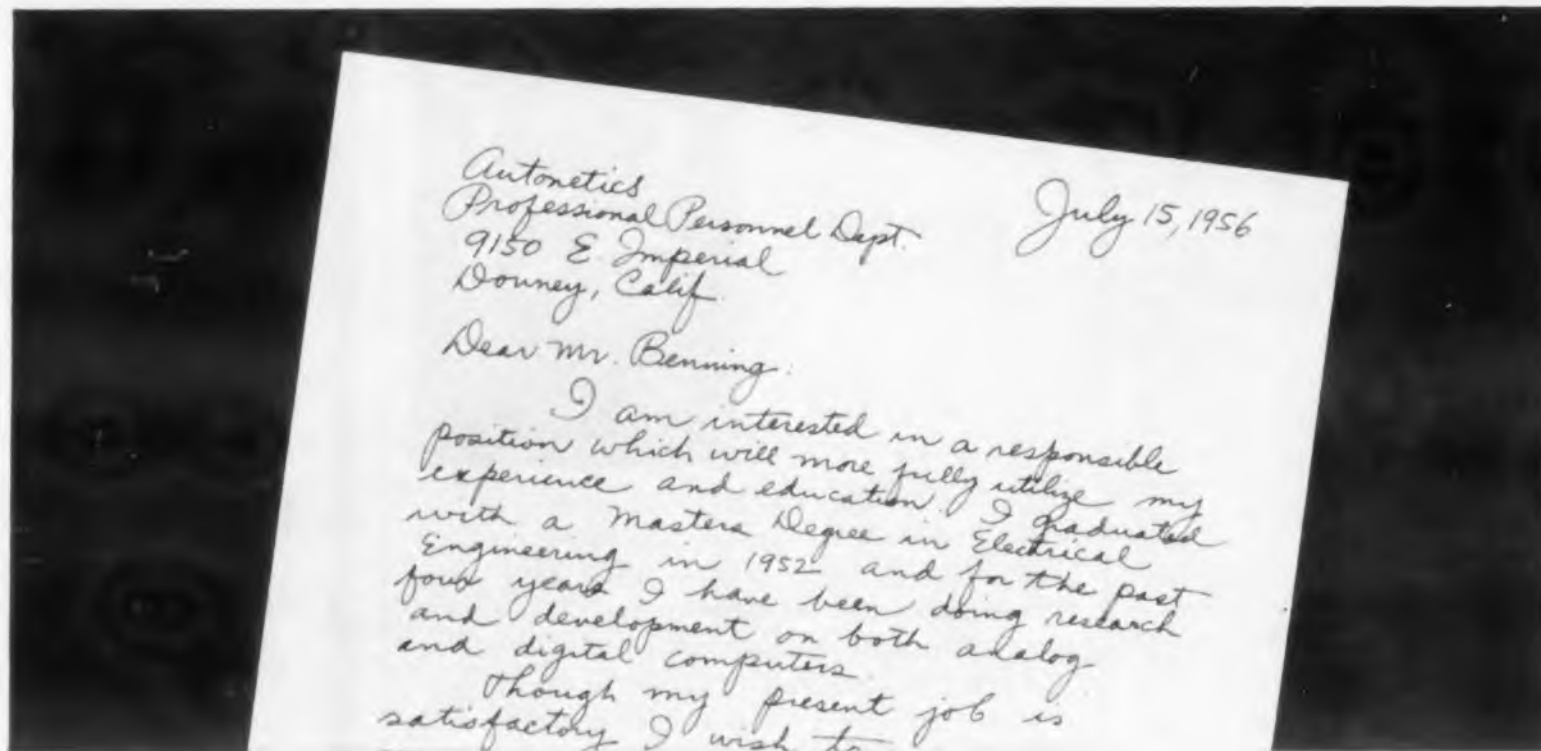 Autonetics
Professional Personnel Dept.
9150 E. Imperial
Downey, Calif.
July 15, 1956
Dear Mr. Benning:
I am interested in a responsible
position which will more fully utilize my
experience and education. I graduated
with a Masters Degree in Electrical
Engineering in 1952 and for the past
four years I have been doing research
and development on both analog
and digital computers.
Though my present job is
satisfactory I wish to